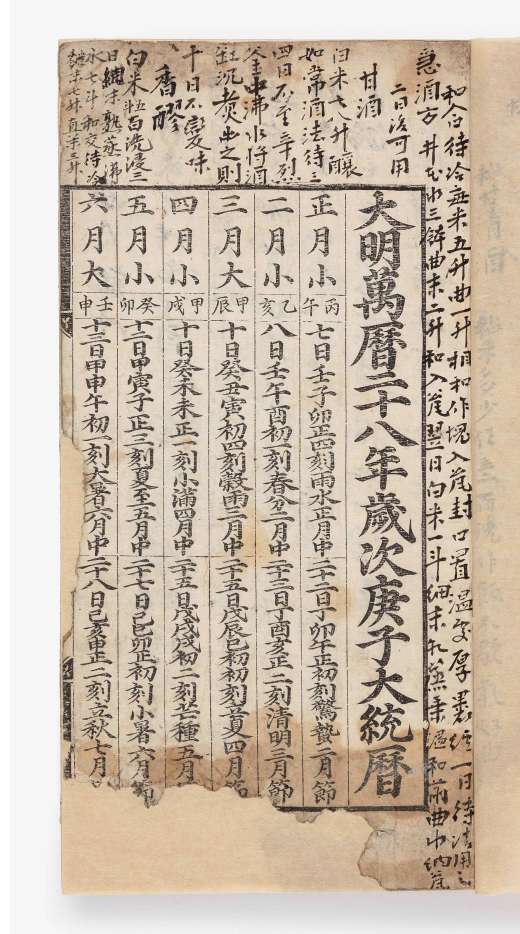 和合待冷每米五升曲一升相和作塊入瓮封口置溫處厚裹經一日待清用之
急酒方 井花水三鉼曲末二升和入瓮翌日白米一斗細末九蒸乘溫和前曲水納瓮
二日後可用
甘酒
白米七八升釀
如常酒法待三
四日不至辛烈
釜中沸水將酒
缸沉煮出之則
十日不變味
香醪
白米五斗百洗浸二
日細末熟蒸沸
水七斗和交待冷
末七升真末三升
大明萬曆二十八年歲次庚子大統曆
正月小 丙午 七日壬子卯正四刻雨水正月中 二十二日丁卯午正初刻驚蟄二月節
二月小 乙亥 八日壬午酉初一刻春分二月中 二十三日丁酉亥正二刻清明三月節
三月大 甲辰 十日癸丑寅初四刻穀雨三月中 二十五日戊辰巳初初刻立夏四月節
四月小 甲戌 十日癸未未正一刻小滿四月中 二十五日戊戌戌初二刻芒種五月
五月小 癸卯 十二日甲寅子正三刻夏至五月中 二十七日己巳卯正初刻小暑六月節
六月大 壬申 十三日甲申午初一刻大暑六月中 二十八日己亥申正二刻立秋七月